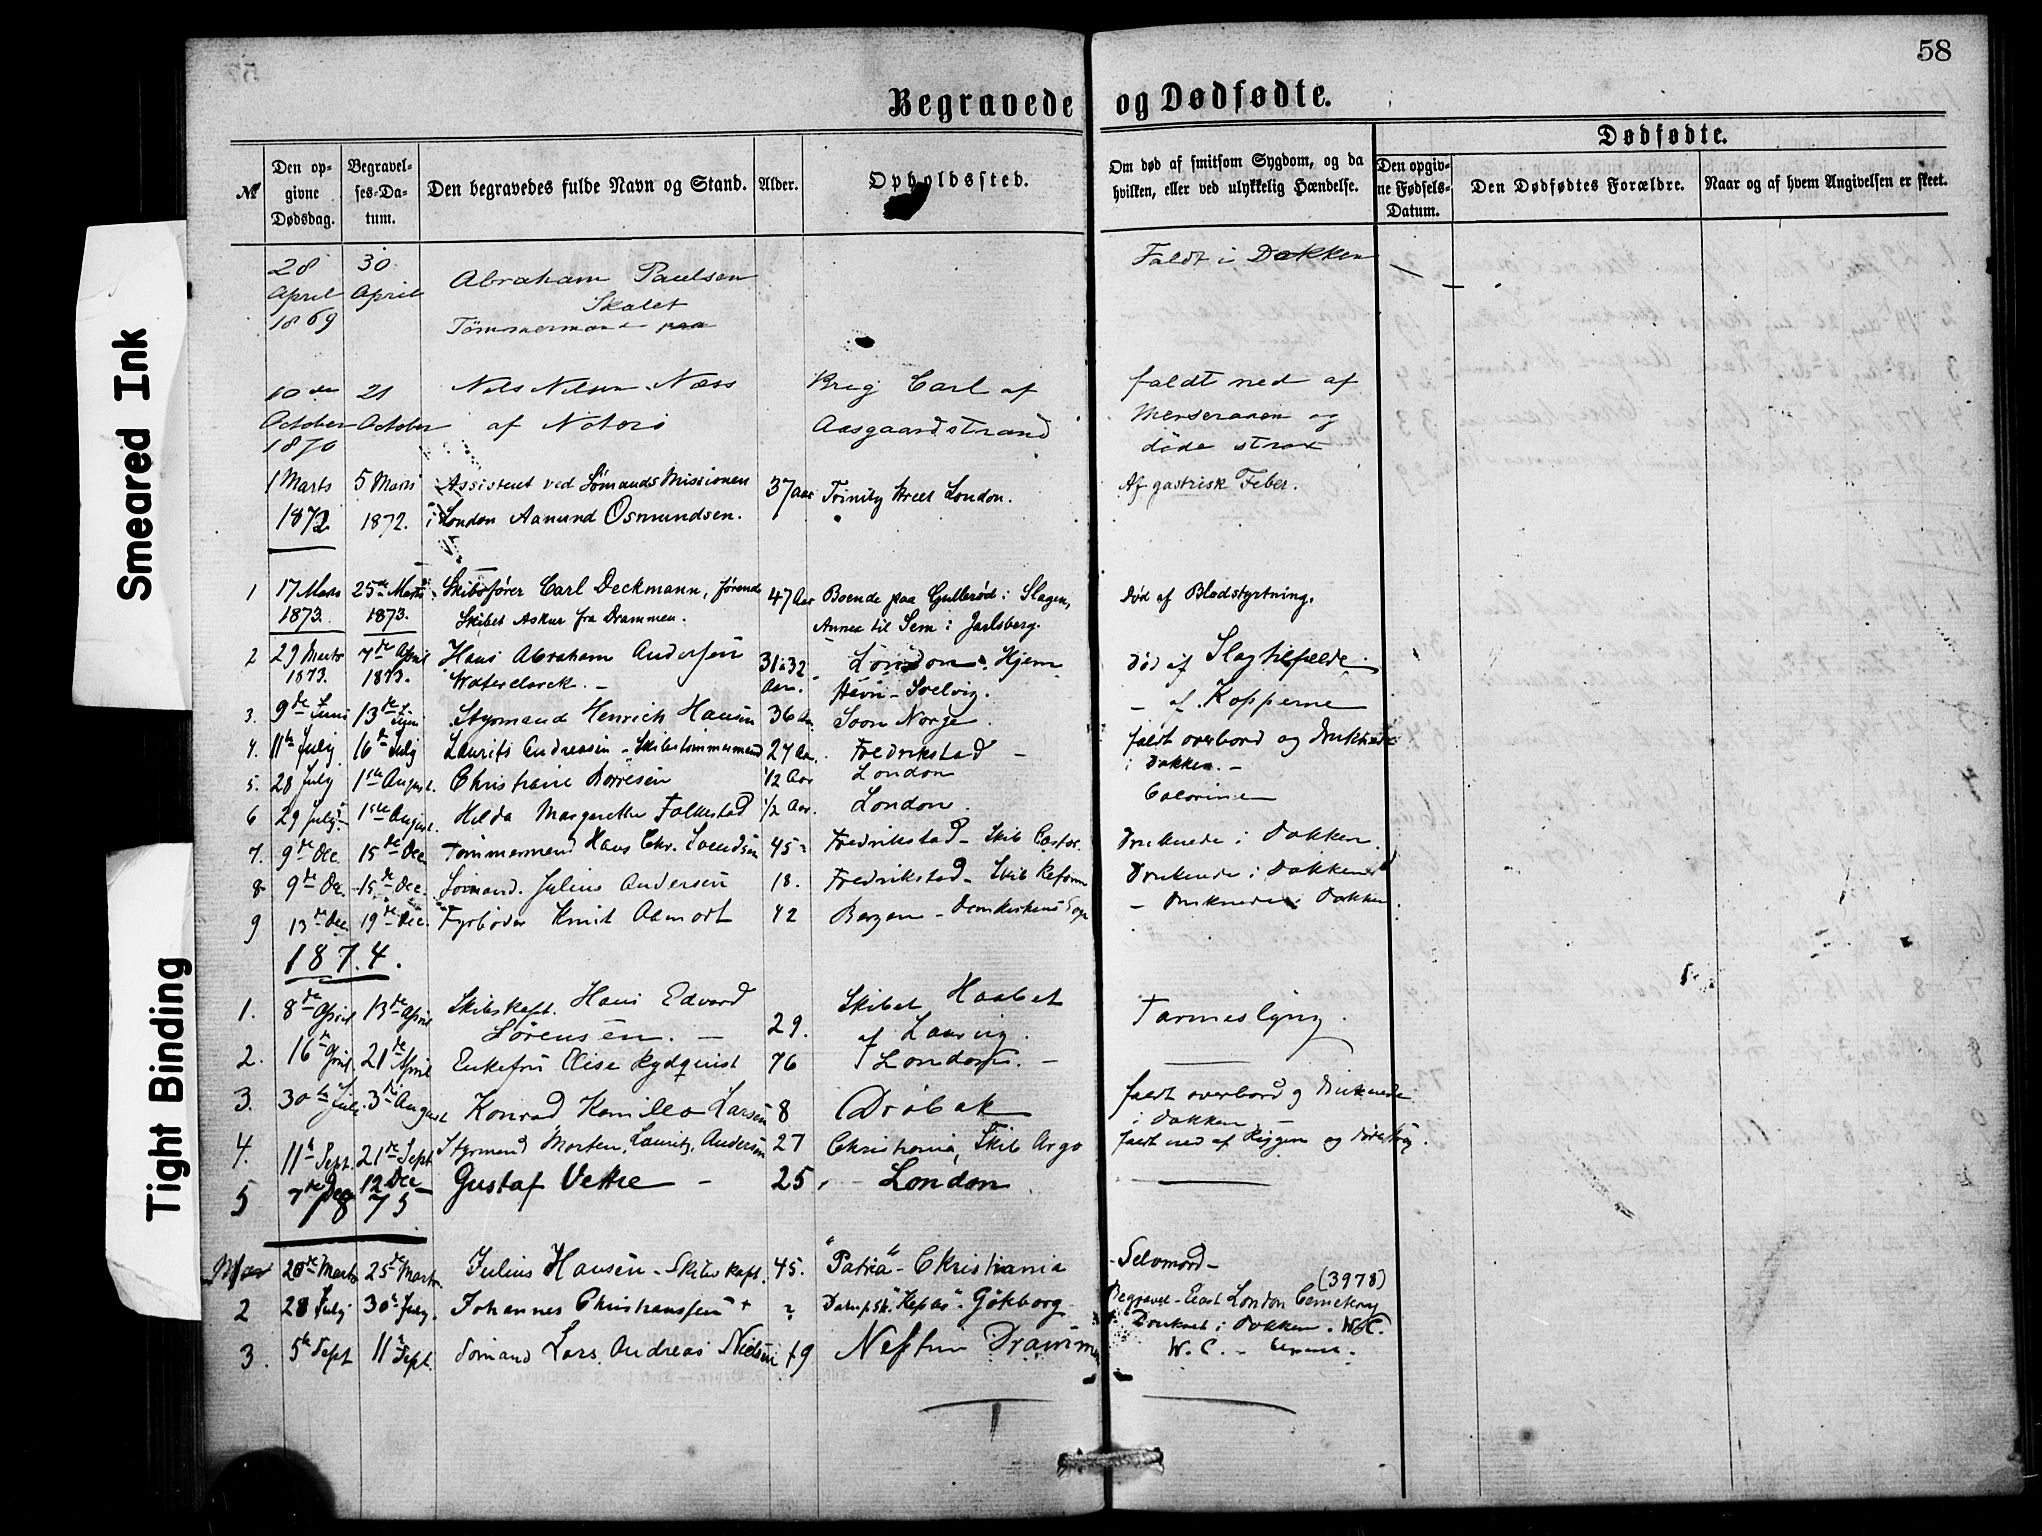 58
Begravede og Dødfødte.
Dødfødte.
№
Den op-
givne
Dødsdag.
Begravel-
ses-Da-
tum.
Den begravedes fulde Navn og Stand.
Alder.
Opholdssted.
Om død af smitsom Sygdom, og da
hvilken, eller ved ulykkelig Hændelse.
Den opgiv-
ne Fødsels-
Datum.
Den Dødfødtes Forældre.
Naar og af hvem Angivelsen er skeet.
Smeared Ink
Tight Binding
28 30 Faldt i Dokken
April April Abraham Paulsen
1869 Skalet
Tømmermand paa
10de 21 Nels Nelsen Næss Brig Carl af faldt ned af
October October af Noterö Aasgaardstrand Merseraaen og
1870 døde strax
1 Marts 5 Mars Assistent ved SømandsMissionen 37 Aar Trinity Street London. Af gastrisk Feber.
1872 1872. i London Aanund Osmundsen.
1 17 Mars 25de Marts Skibsfører Carl Deckmann, førende 47 Aar Boende paa Gullerød i Slagen, Død af Blodstyrtning.
1873. 1873. Skibet Askur fra Drammen. Annex til Sem i Jarlsberg.
2 29 Marts 7de April Hans Abraham Andersen 31 a 32 London. Hjem Død af Slagtilfælde
1873. 1873. Waterclerck. Aar. Havn - Svelvig.
3. 9de Juni 13de Juni Styrmand Henrich Hansen 36 Aar Soon Norge. - af Kopperne
4. 11te July 16de July Laurits Andreasen - Skibstømmermand 27 Aar. Fredrikstad - faldt overbord og druknede
i Dokken. -
5. 28 July 1ste August. Christiane Børresen 1/2 Aar London
6 29 July 1ste August. Hilda Margarethe Falkestad 1/2 Aar. London.
7. 9de Dec. 15de Dec. Tømmermand Hans Chr. Svendsen 45 Fredrikstad - Skib Castor. Druknede i Dokken.
8 9de Dec. 15de Dec. Sømand. Julius Andersen 18. Fredrikstad - Skib Reform Druknede i Dokken
9 13de Dec. 19de Dec. Fyrbøder Knut 42 Bergen - - Druknede i Dokken.
1874.
1. 8de April 13de April Skibskapt. Hans Edvard 29. Skibet Haabet Tarmeslyng.
Sørensen. - af Laurvig.
2. 16de April 21de April Enkefru Elise Rydquist 76 London. -
3. 30te Juli 3die August Konrad Kamillo Larsen 8 Drøbak faldt overbord og druknede
i Dokken -
4. 11te Sept. 21de Sept Styrmand Morten Lauritz Andersen 27 Christiania, Skib Argo faldt ned af Riggen og døde strax.
5 7de Dec 12 Dec Gustaf Vettre - 25 London
1875
20de Marts 25de Marts Julius Hansen - Skibskapt. 45. "Patria" - Christiania - Selvmord -
(3978)
2 28 July 30te July. Johannes Christianssen + ? Dampsk. - Göteborg Begravet - East London Cemetery
Druknet i Dokken. W.C.
3. 5te Sept 11te Sept. Sømand Lars Andreas Nielsen 19 Neptun Drammen W. C. -